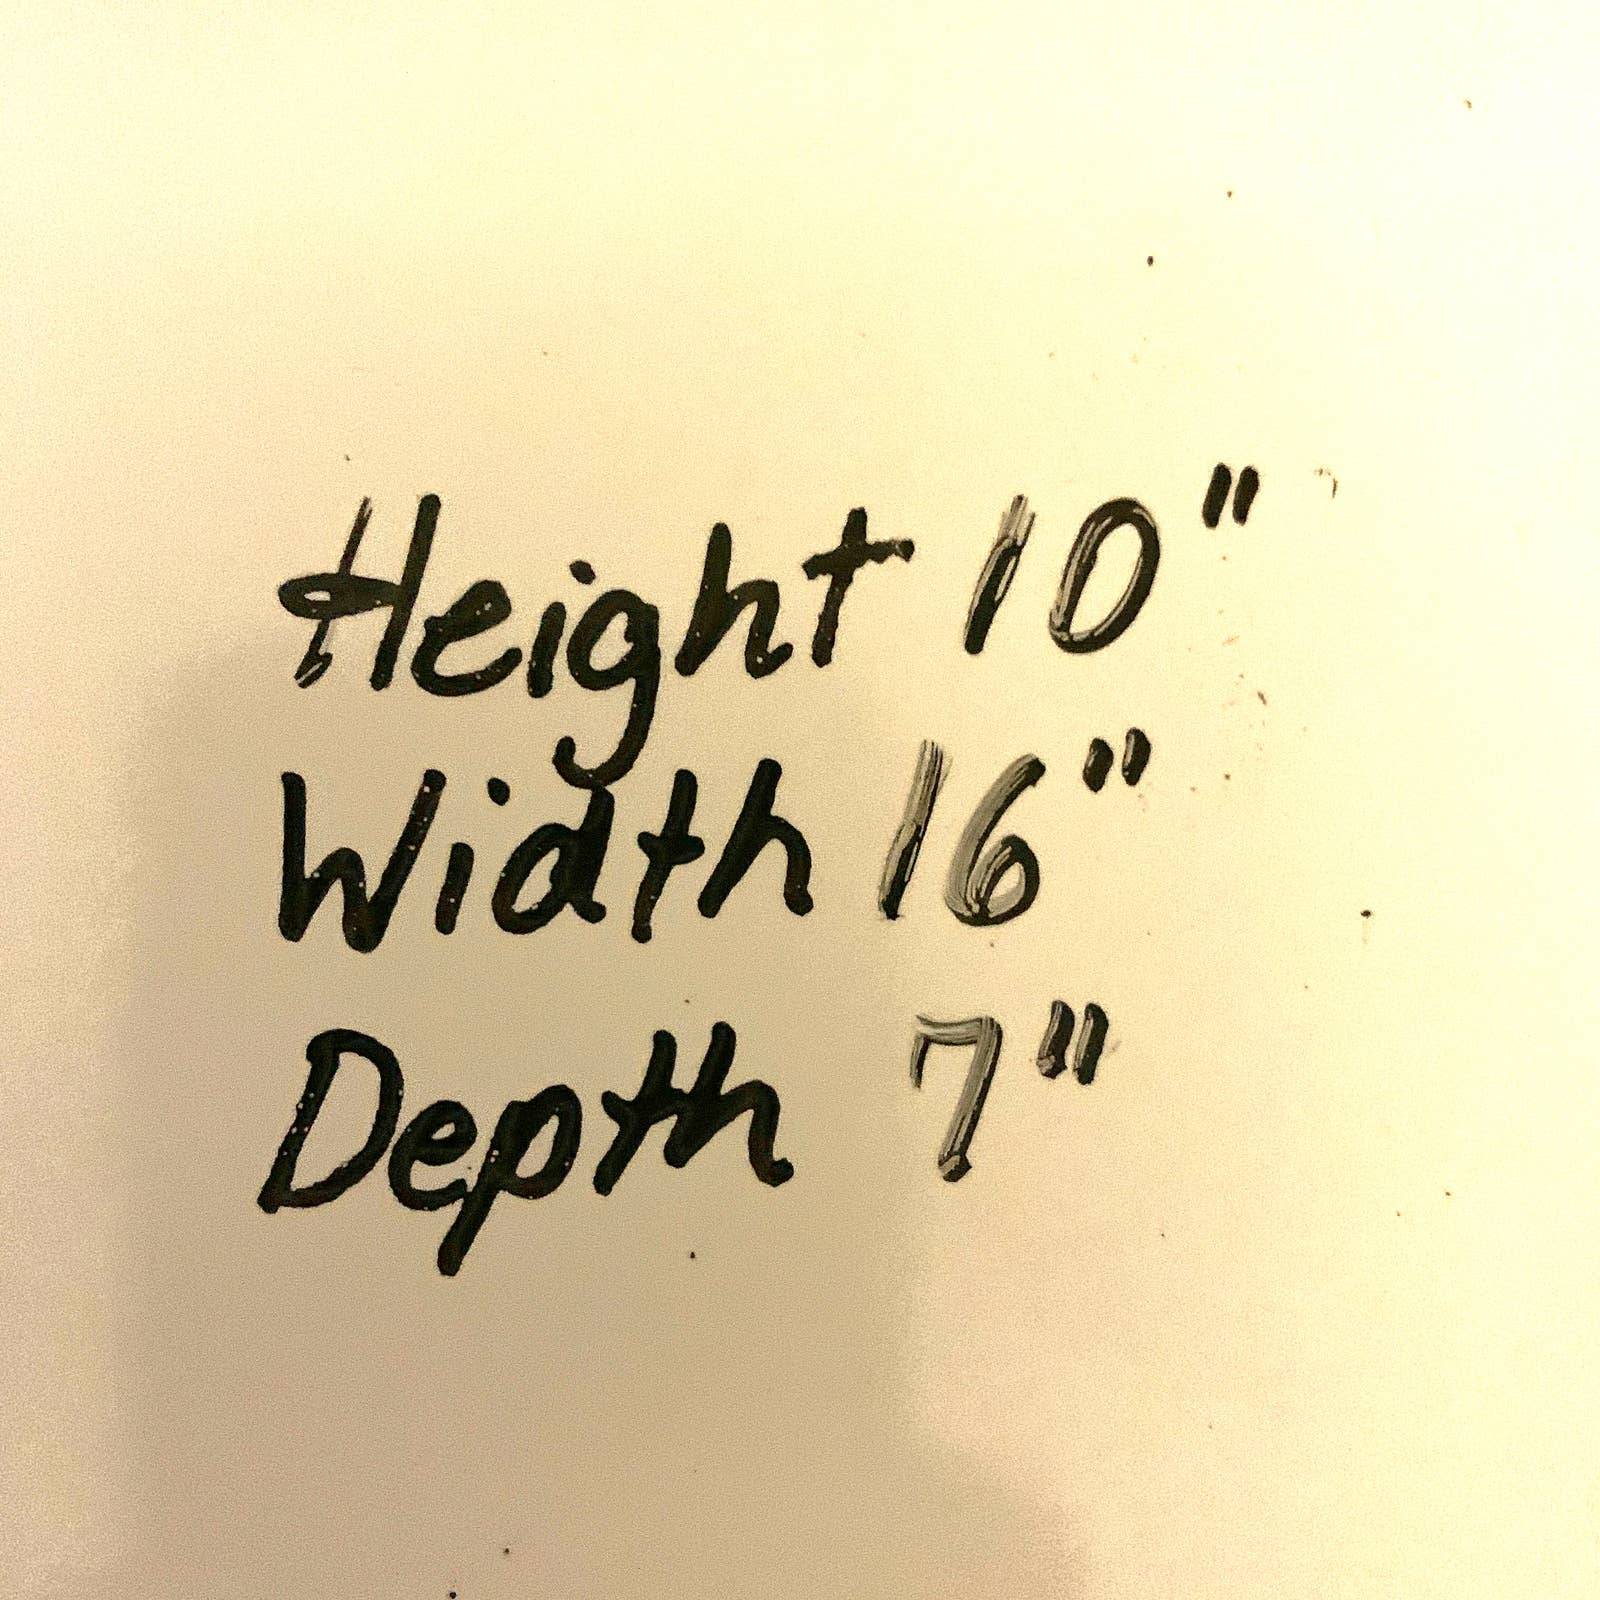 Height 10"
Width 16"
Depth 7"